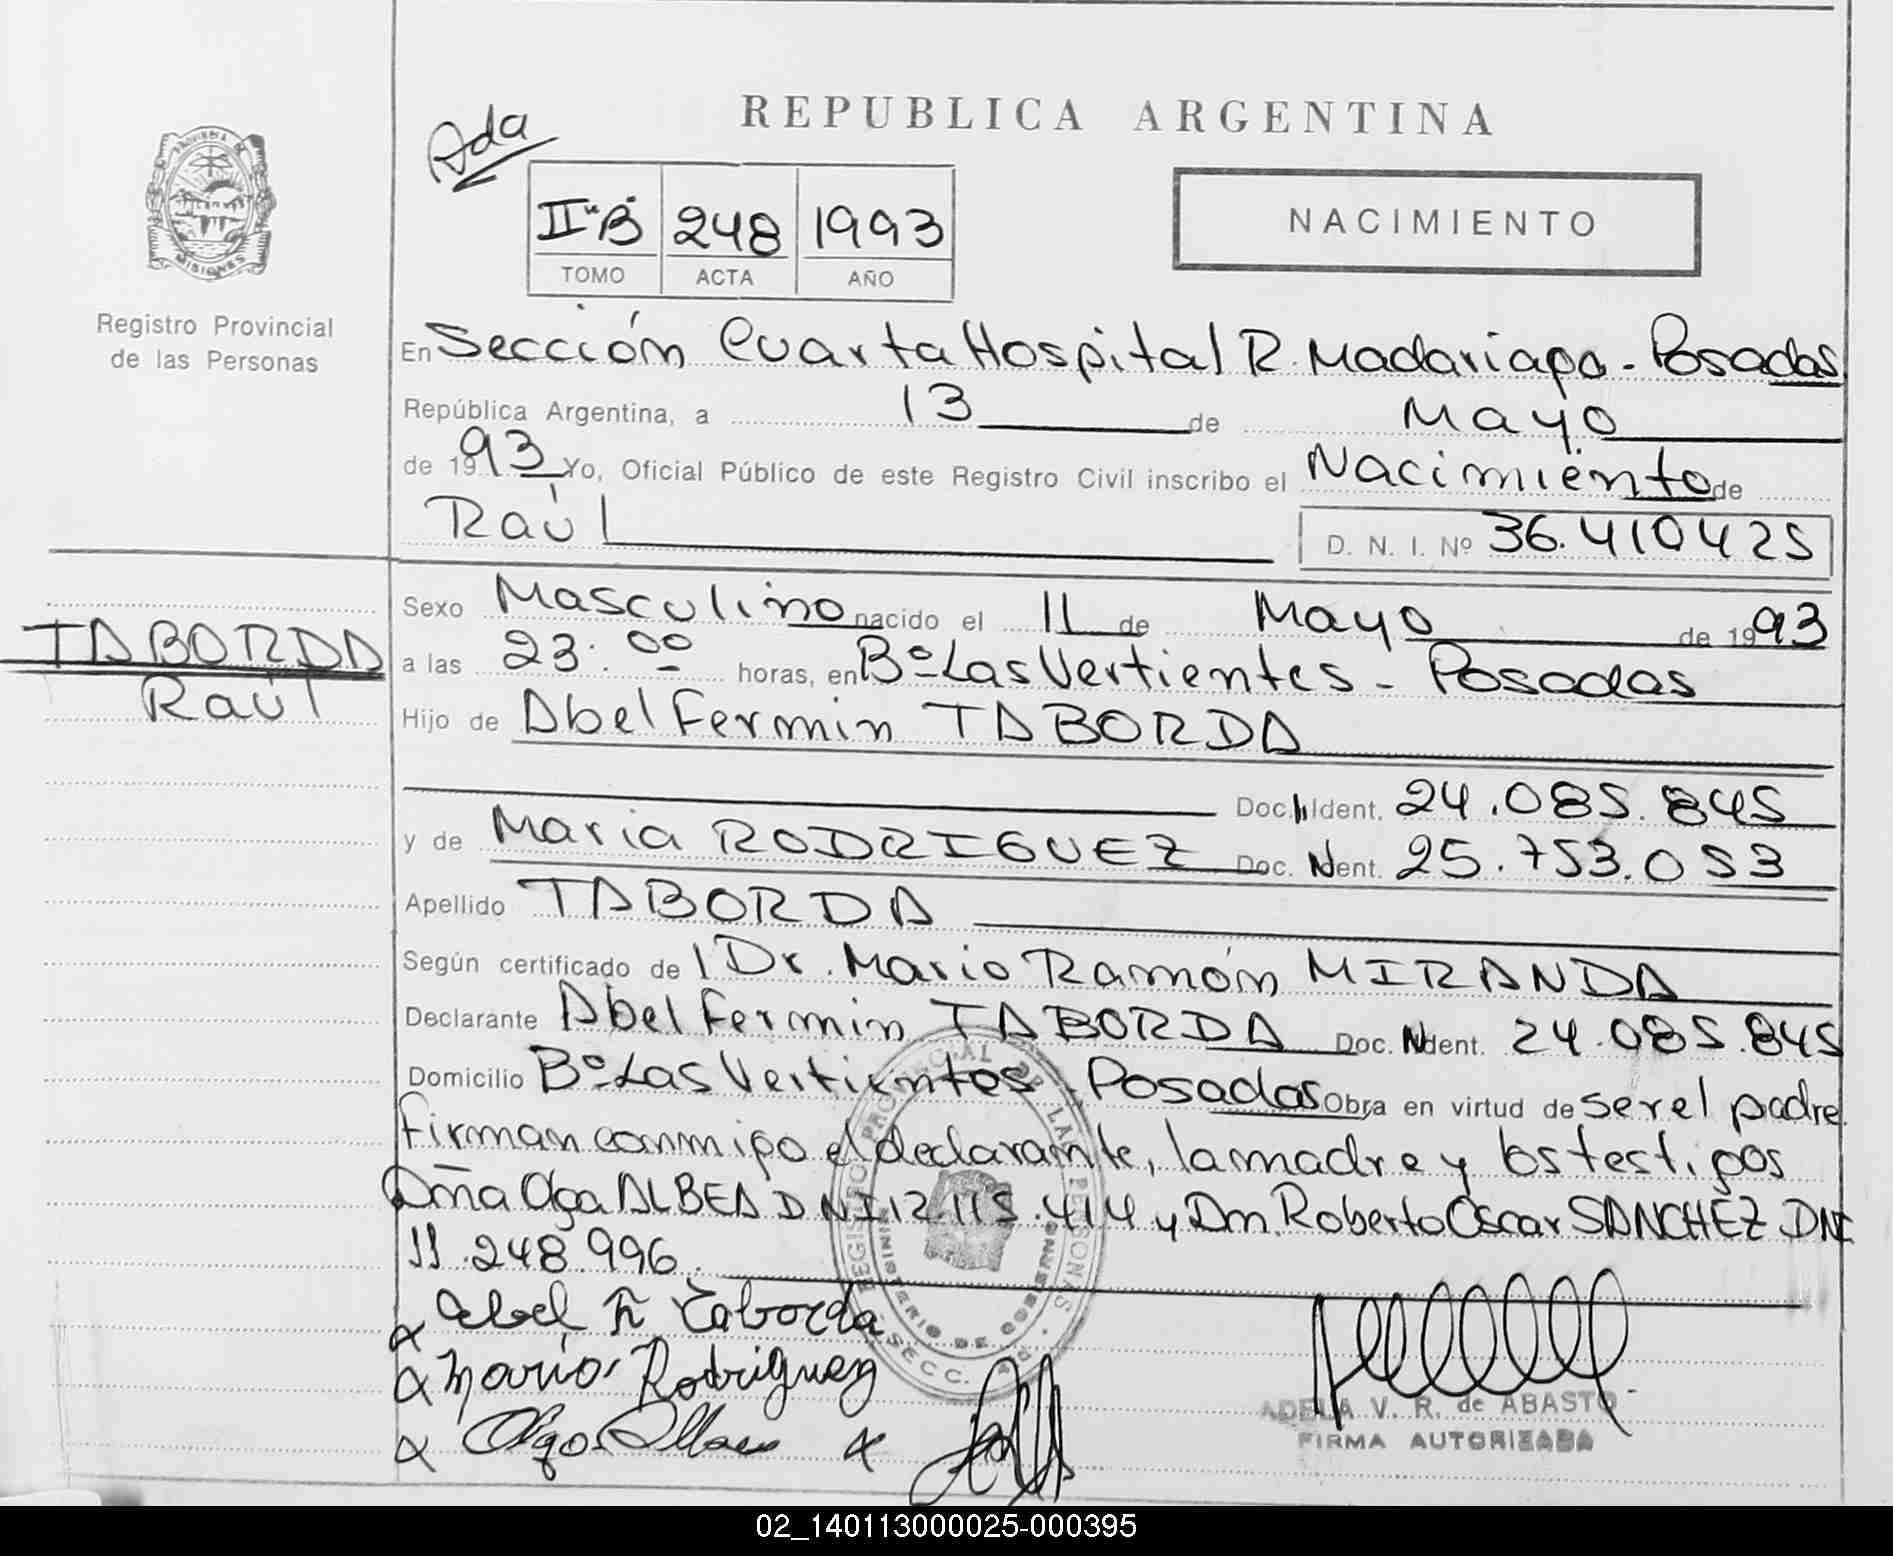 REPUBLICA ARGENTINA
Ada
PROVINCIA DE
MISIONES
II "B" 248 1993
TOMO ACTA AÑO
NACIMIENTO
Registro Provincial
de las Personas
En Sección Cuarta Hospital R. Madariaga - Posadas
República Argentina, a 13 de Mayo
de 1993 Yo, Oficial Público de este Registro Civil inscribo el Nacimiento de
Raúl D. N. I. Nº 36.410425
TABORDA
Raúl
Sexo Masculino nacido el 11 de Mayo de 1993
a las 23:00 horas, en Bº Las Vertientes - Posadas
Hijo de Abel Fermin TABORDA
Doc. Ident. 24.085.845
y de Maria RODRIGUEZ Doc. Ident. 25.753.053
Apellido TABORDA
Según certificado de l Dr. Mario Ramón MIRANDA
Declarante Abel Fermin TABORDA Doc. Ident. 24.085.845
Domicilio Bº Las Vertientes - Posadas Obra en virtud de ser el padre
firman conmigo el declarante, la madre y los testigos
Dña Olga ALBEA DNI 12.115.414 y Dn. Roberto Oscar SANCHEZ DNI
11.248.996.
REGISTRO PROVINCIAL DE LAS PERSONAS
MINISTERIO DE GOBIERNO
SECC. 4a
Abel F. Taborda
Maria Rodriguez
ADELA V. R. de ABASTO
FIRMA AUTORIZADA
02_140113000025-000395